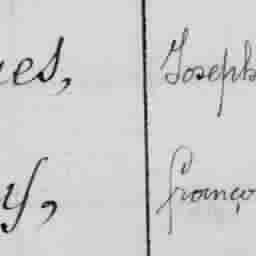 es, Joseph
y, franço